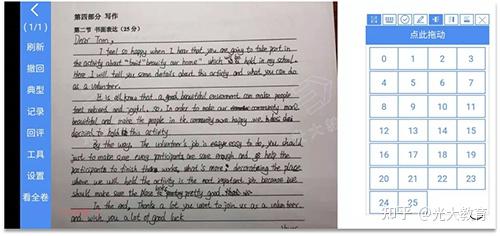 (1/1)
刷新
撤回
典型
记录
回评
工具
设置
看全卷
第四部分 写作
第二节 书面表达(25分)
Dear Tom,
I feel so happy when I hear that you are going to take part in
the activity about "build beautiful our home" which will hold in my school.
Here I will tell you some details about this activity and what you can do
as a volunteer.
It is all know that a good beautiful environment can make people
feel relaxed and joyful. so, in order to make our community more
beautiful and make the people in the community happy we
decided to hold this activity
By the way, The volunteer's job is easy to do, you should
just to make sure every participants are save enough and help the
participants to finish their works, what's more, decorating the place
where we will hold the activity is the most important job because we
should make sure the place pretty good.
In the end, Thanks a lot you want to join us as a volunteer
and wish you a lot of good luck
点此拖动
0 1 2 3
4 5 6 7
8 9 10 11
12 13 14 15
16 17 18 19
20 21 22 23
24 25
知乎 @光大教育